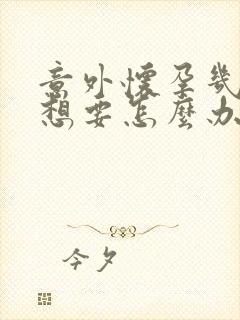 意外懷孕幾
想要怎麼办
今夕